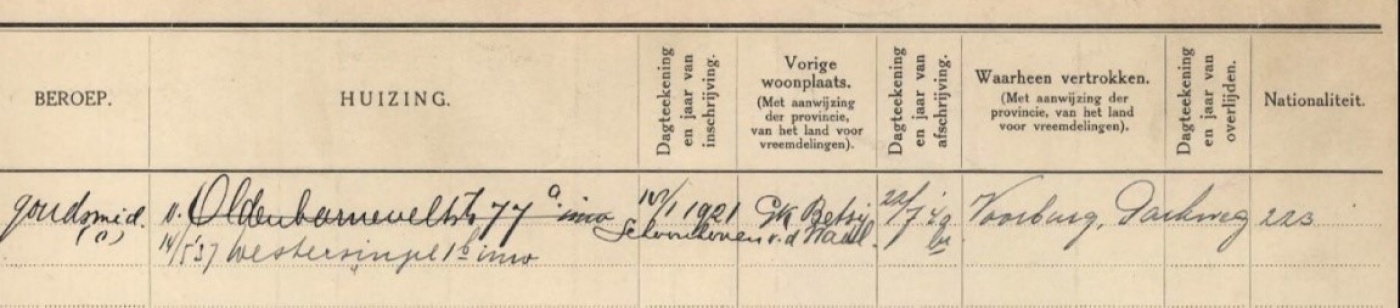 BEROEP.
HUIZING.
Dagteekening
en jaar van
inschrijving.
Vorige
woonplaats.
(Met aanwijzing
der provincie,
van het land voor
vreemdelingen).
Dagteekening
en jaar van
afschrijving.
Waarheen vertrokken.
(Met aanwijzing der
provincie, van het land
voor vreemdelingen).
Dagteekening
en jaar van
overlijden.
Nationaliteit.
goudsmid.
v. Oldenbarneveltstr 77 a inw
1921
Schoonhoven
GK Betsy
v.d Waal
22/7
Voorburg, Parkweg 223
14/5 37 Westersingel 1b inw